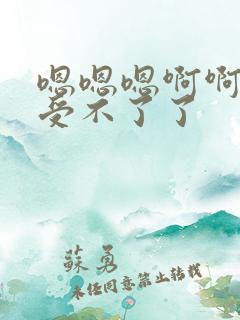 嗯嗯嗯啊啊
受不了了
蘇勇
未经同意禁止转载